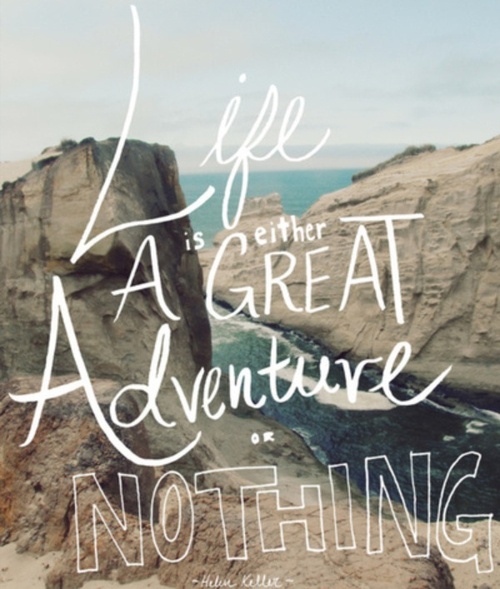 Life
is either
A GREAT
Adventure
OR
NOTHING
~Helen Keller~